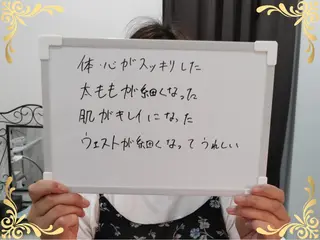 体・心がスッキリした
太ももが細くなった
肌がキレイになった
ウェストが細くなってうれしい